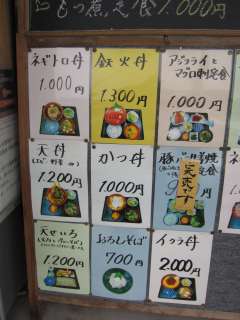 もつ煮定食 1.000円
ネギトロ丼
1.000円
鉄火丼
1.300円
アジフライと
マグロ刺定食
1.000円
天丼
1.200円
かつ丼
1.000円
豚バラ焼
定食
完売です
天せいろ
1.200円
おろしそば
700円
イクラ丼
2.000円